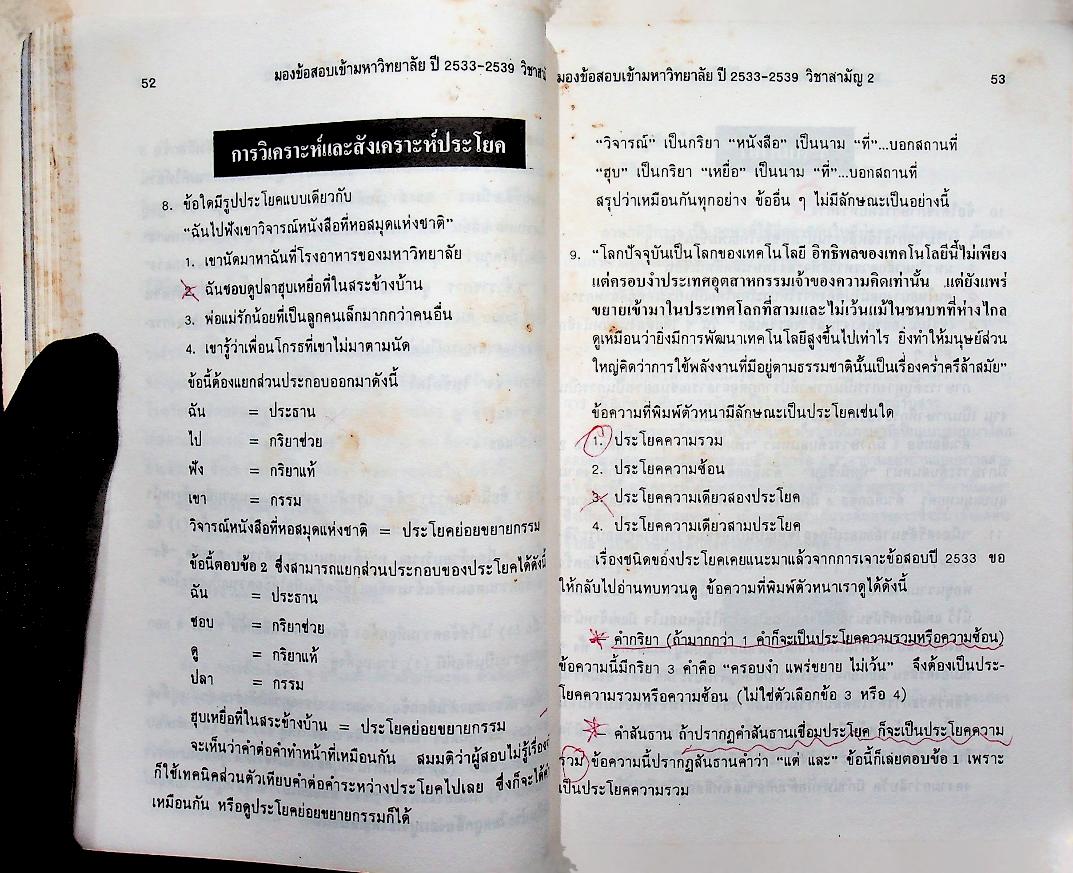 52
มองข้อสอบเข้ามหาวิทยาลัย ปี 2533-2539 วิชาสามั
การวิเคราะห์และสังเคราะห์ประโยค
8. ข้อใดมีรูปประโยคแบบเดียวกับ
“ฉันไปฟังเขาวิจารณ์หนังสือที่หอสมุดแห่งชาติ”
1. เขานัดมาหาฉันที่โรงอาหารของมหาวิทยาลัย
2. ฉันชอบดูปลาฮุบเหยื่อที่ในสระข้างบ้าน
3. พ่อแม่รักน้อยที่เป็นลูกคนเล็กมากกว่าคนอื่น
4. เขารู้ว่าเพื่อนโกรธที่เขาไม่มาตามนัด
ข้อนี้ต้องแยกส่วนประกอบออกมาดังนี้
ฉัน = ประธาน
ไป = กริยาช่วย
ฟัง = กริยาแท้
เขา = กรรม
วิจารณ์หนังสือที่หอสมุดแห่งชาติ = ประโยคย่อยขยายกรรม
ข้อนี้ตอบข้อ 2 ซึ่งสามารถแยกส่วนประกอบของประโยคได้ดังนี้
ฉัน = ประธาน
ชอบ = กริยาช่วย
ดู = กริยาแท้
ปลา = กรรม
ฮุบเหยื่อที่ในสระข้างบ้าน = ประโยคย่อยขยายกรรม
จะเห็นว่าคำต่อคำทำหน้าที่เหมือนกัน สมมติว่าผู้สอบไม่รู้เรื่อง
ก็ใช้เทคนิคส่วนตัวเทียบคำต่อคำระหว่างประโยคไปเลย ซึ่งก็จะได้
เหมือนกัน หรือดูประโยคย่อยขยายกรรมก็ได้
มองข้อสอบเข้ามหาวิทยาลัย ปี 2533-2539 วิชาสามัญ 2
53
“วิจารณ์” เป็นกริยา “หนังสือ” เป็นนาม “ที่”...บอกสถานที่
“ฮุบ” เป็นกริยา “เหยื่อ” เป็นนาม “ที่”...บอกสถานที่
สรุปว่าเหมือนกันทุกอย่าง ข้ออื่น ๆ ไม่มีลักษณะเป็นอย่างนี้
9. “โลกปัจจุบันเป็นโลกของเทคโนโลยี อิทธิพลของเทคโนโลยีนี้ไม่เพียง
แต่ครอบงำประเทศอุตสาหกรรมเจ้าของความคิดเท่านั้น แต่ยังแพร่
ขยายเข้ามาในประเทศโลกที่สามและไม่เว้นแม้ในชนบทที่ห่างไกล
ดูเหมือนว่ายิ่งมีการพัฒนาเทคโนโลยีสูงขึ้นไปเท่าไร ยิ่งทำให้มนุษย์ส่วน
ใหญ่คิดว่าการใช้พลังงานที่มีอยู่ตามธรรมชาตินั้นเป็นเรื่องคร่ำครึล้าสมัย”
ข้อความที่พิมพ์ตัวหนามีลักษณะเป็นประโยคเช่นใด
1. ประโยคความรวม
2. ประโยคความซ้อน
3. ประโยคความเดียวสองประโยค
4. ประโยคความเดียวสามประโยค
เรื่องชนิดของประโยคเคยแนะมาแล้วจากการเจาะข้อสอบปี 2533 ขอ
ให้กลับไปอ่านทบทวนดู ข้อความที่พิมพ์ตัวหนาเราดูได้ดังนี้
* คำกริยา (ถ้ามากกว่า 1 คำก็จะเป็นประโยคความรวมหรือความซ้อน)
ข้อความนี้มีกริยา 3 คำคือ “ครอบงำ แพร่ขยาย ไม่เว้น” จึงต้องเป็นประ-
โยคความรวมหรือความซ้อน (ไม่ใช่ตัวเลือกข้อ 3 หรือ 4)
* คำสันธาน ถ้าปรากฏคำสันธานเชื่อมประโยค ก็จะเป็นประโยคความ
รวม ข้อความนี้ปรากฏสันธานคำว่า “แต่ และ” ข้อนี้ก็เลยตอบข้อ 1 เพราะ
เป็นประโยคความรวม